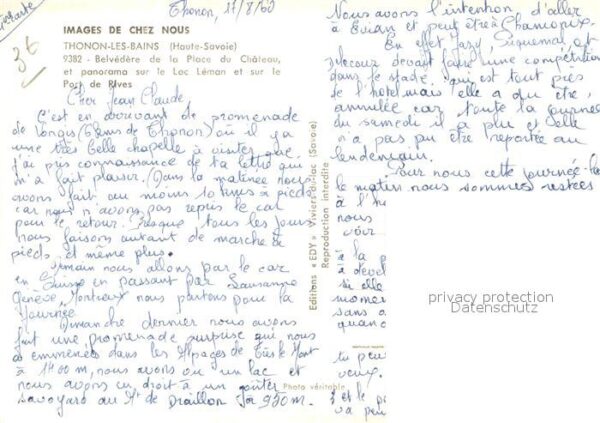 1ère carte
Thonon, 17/8/60
36
IMAGES DE CHEZ NOUS
THONON-LES-BAINS (Haute-Savoie)
9382 - Belvédère de la Place du Château,
et panorama sur le Lac Léman et sur le
Port de Rives
Cher Jean Claude,
C'est en arrivant de promenade
de (5 kms de Thonon) où il y a
une très belle chapelle à visiter que
j'ai pris connaissance de ta lettre qui
m'a fait plaisir. (Dans la matinée nous
avons fait au moins 10 kms à pieds
car nous n'avons pas repris le car
pour le retour. Presque tous les jours
nous faisons autant de marche à
pieds et même plus.
Demain nous allons par le car
en Suisse en passant par Lausanne
Genève, Montreux nous partons pour la
journée.
Dimanche dernier nous avons
fait une promenade surprise qui nous
a emmenés dans les Alpages de
à 1400 m, nous avons vu un lac et
nous avons eu droit à un goûter
savoyard au Mt de Draillon sur 950 m.
Photo véritable
Editions « EDY » Viviers-du-lac (Savoie)
Reproduction interdite
Nous avons l'intention d'aller
à Evian et peut être à Chamonix.
En effet Jazy, et
Delecour devait faire une compétition
dans le stade, qui est tout près
de l'hôtel mais elle a du être
annulée car toute la journée
du samedi il a plu et elle
n'a pas pu être reportée au
lendemain.
Pour nous cette journée-là
le matin nous sommes restées
à l'h
nous
voir
à la p
à devel
si elle
momen
sans a
quand
tu peu
veux.
et le p
va peu
privacy protection
Datenschutz